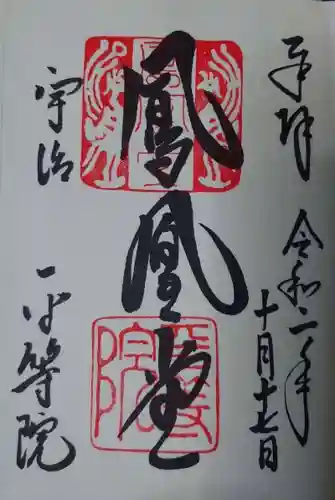 奉拝 令和二年
十月十七日
鳳凰堂
宇治 平等院